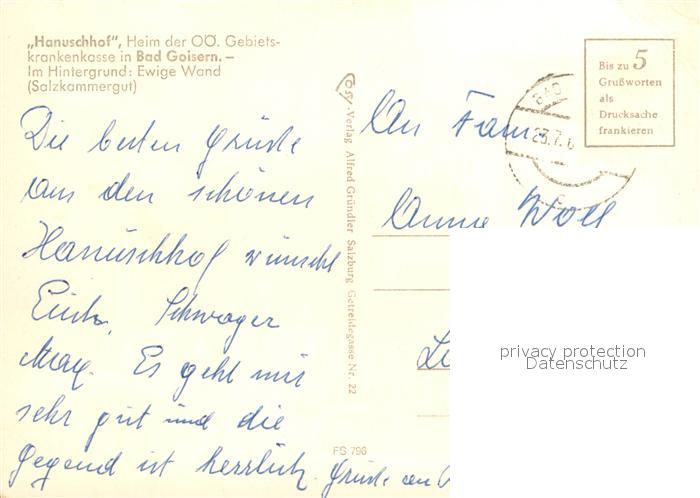 „Hanuschhof", Heim der OÖ. Gebiets-
krankenkasse in Bad Goisern. –
Im Hintergrund: Ewige Wand
(Salzkammergut)
Die besten Grüße
aus dem schönen
Hanuschhof wünscht
Euch, Schwager
Max. Es geht mir
sehr gut und die
Gegend ist herrlich. Grüße an
Cosy-Verlag Alfred Gründler Salzburg Getreidegasse Nr. 22
FS 796
Bis zu 5
Grußworten
als
Drucksache
frankieren
BAD
23.7.6
An Fam.
Anna Woll
privacy protection
Datenschutz